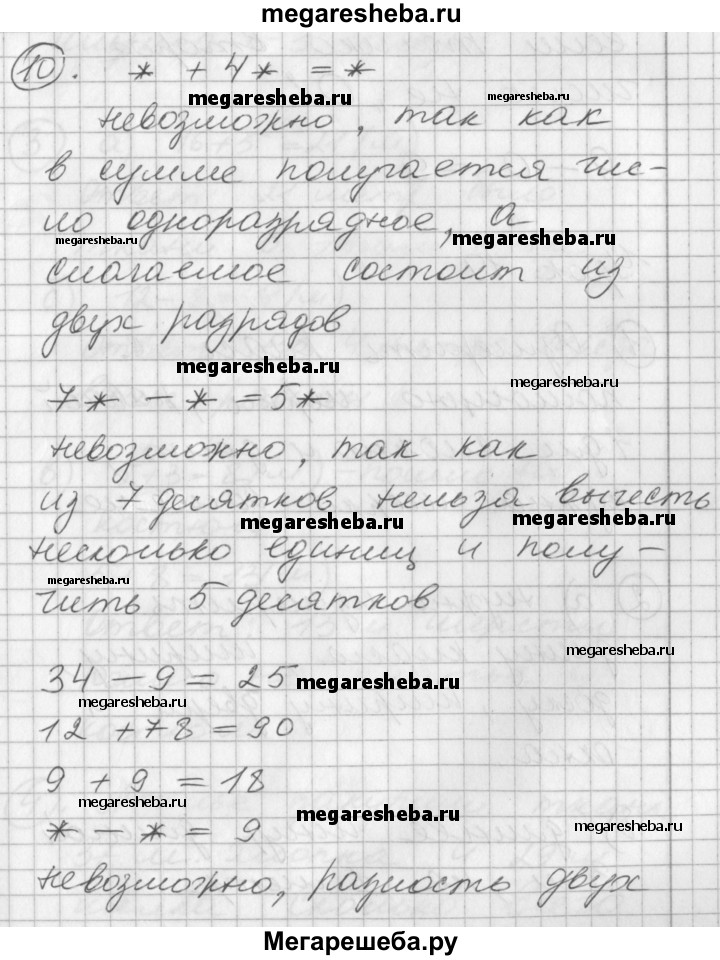 megaresheba.ru
10. * + 4* = *
megaresheba.ru megaresheba.ru
невозможно, так как
в сумме получается чис-
ло одноразрядное, а
megaresheba.ru megaresheba.ru
слагаемое состоит из
двух разрядов
megaresheba.ru megaresheba.ru
7* - * = 5*
невозможно, так как
из 7 десятков нельза вычесть
megaresheba.ru megaresheba.ru
несколько единиц и полу-
megaresheba.ru
чить 5 десятков
megaresheba.ru
34 - 9 = 25 megaresheba.ru
megaresheba.ru
12 + 78 = 90
9 + 9 = 18
megaresheba.ru megaresheba.ru
* - * = 9 megaresheba.ru
невозможно, разность двух
Мегарешеба.ру